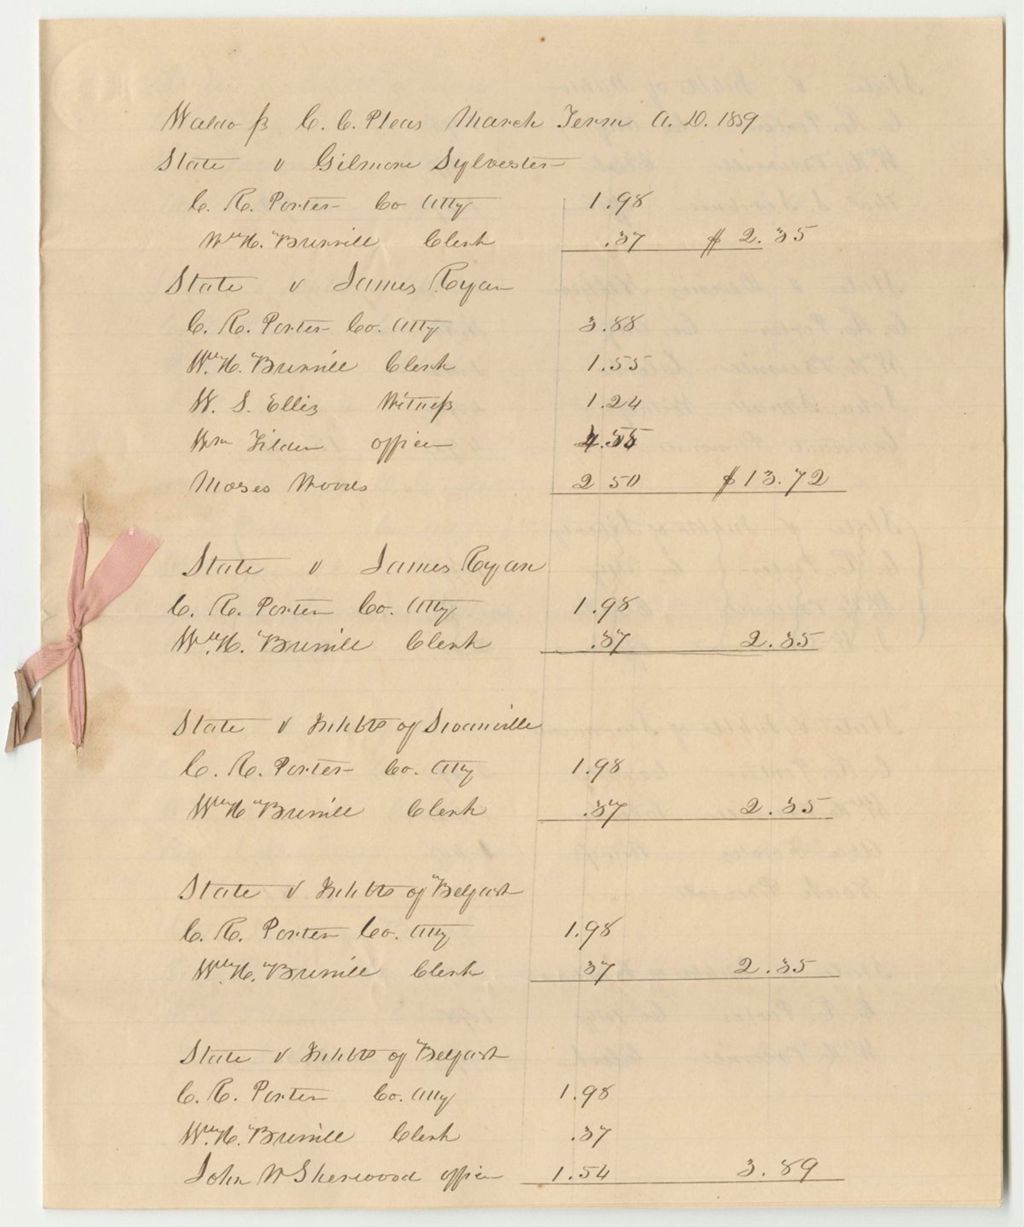 Waldo ss C. C. Pleas March Term A. D. 1839
State v Gilmore Sylvester
C. R. Porter Co Atty 1.98
Wm H. Burrill Clerk .37 $ 2.35
State v James Ryan
C. R. Porter Co. Atty 3.88
Wm. H. Burrill Clerk 1.55
W. S. Ellis Witness 1.24
Wm Tilden officer 4.55
Moses Woods 2 50 $13.72
State v James Ryan
C. R. Porter Co. Atty 1.98
Wm. H. Burrill Clerk .37 2.35
State v Inhbts of Swanville
C. R. Porter Co. Atty 1.98
Wm H Burrill Clerk .37 2.35
State v Inhbts of Belfast
C. R. Porter Co. Atty 1.98
Wm. H. Burrill Clerk 37 2.35
State v Inhbts of Belfast
C. R. Porter Co. Atty 1.98
Wm. H. Burrill Clerk .37
John W Sherwood officer 1.54 3.89